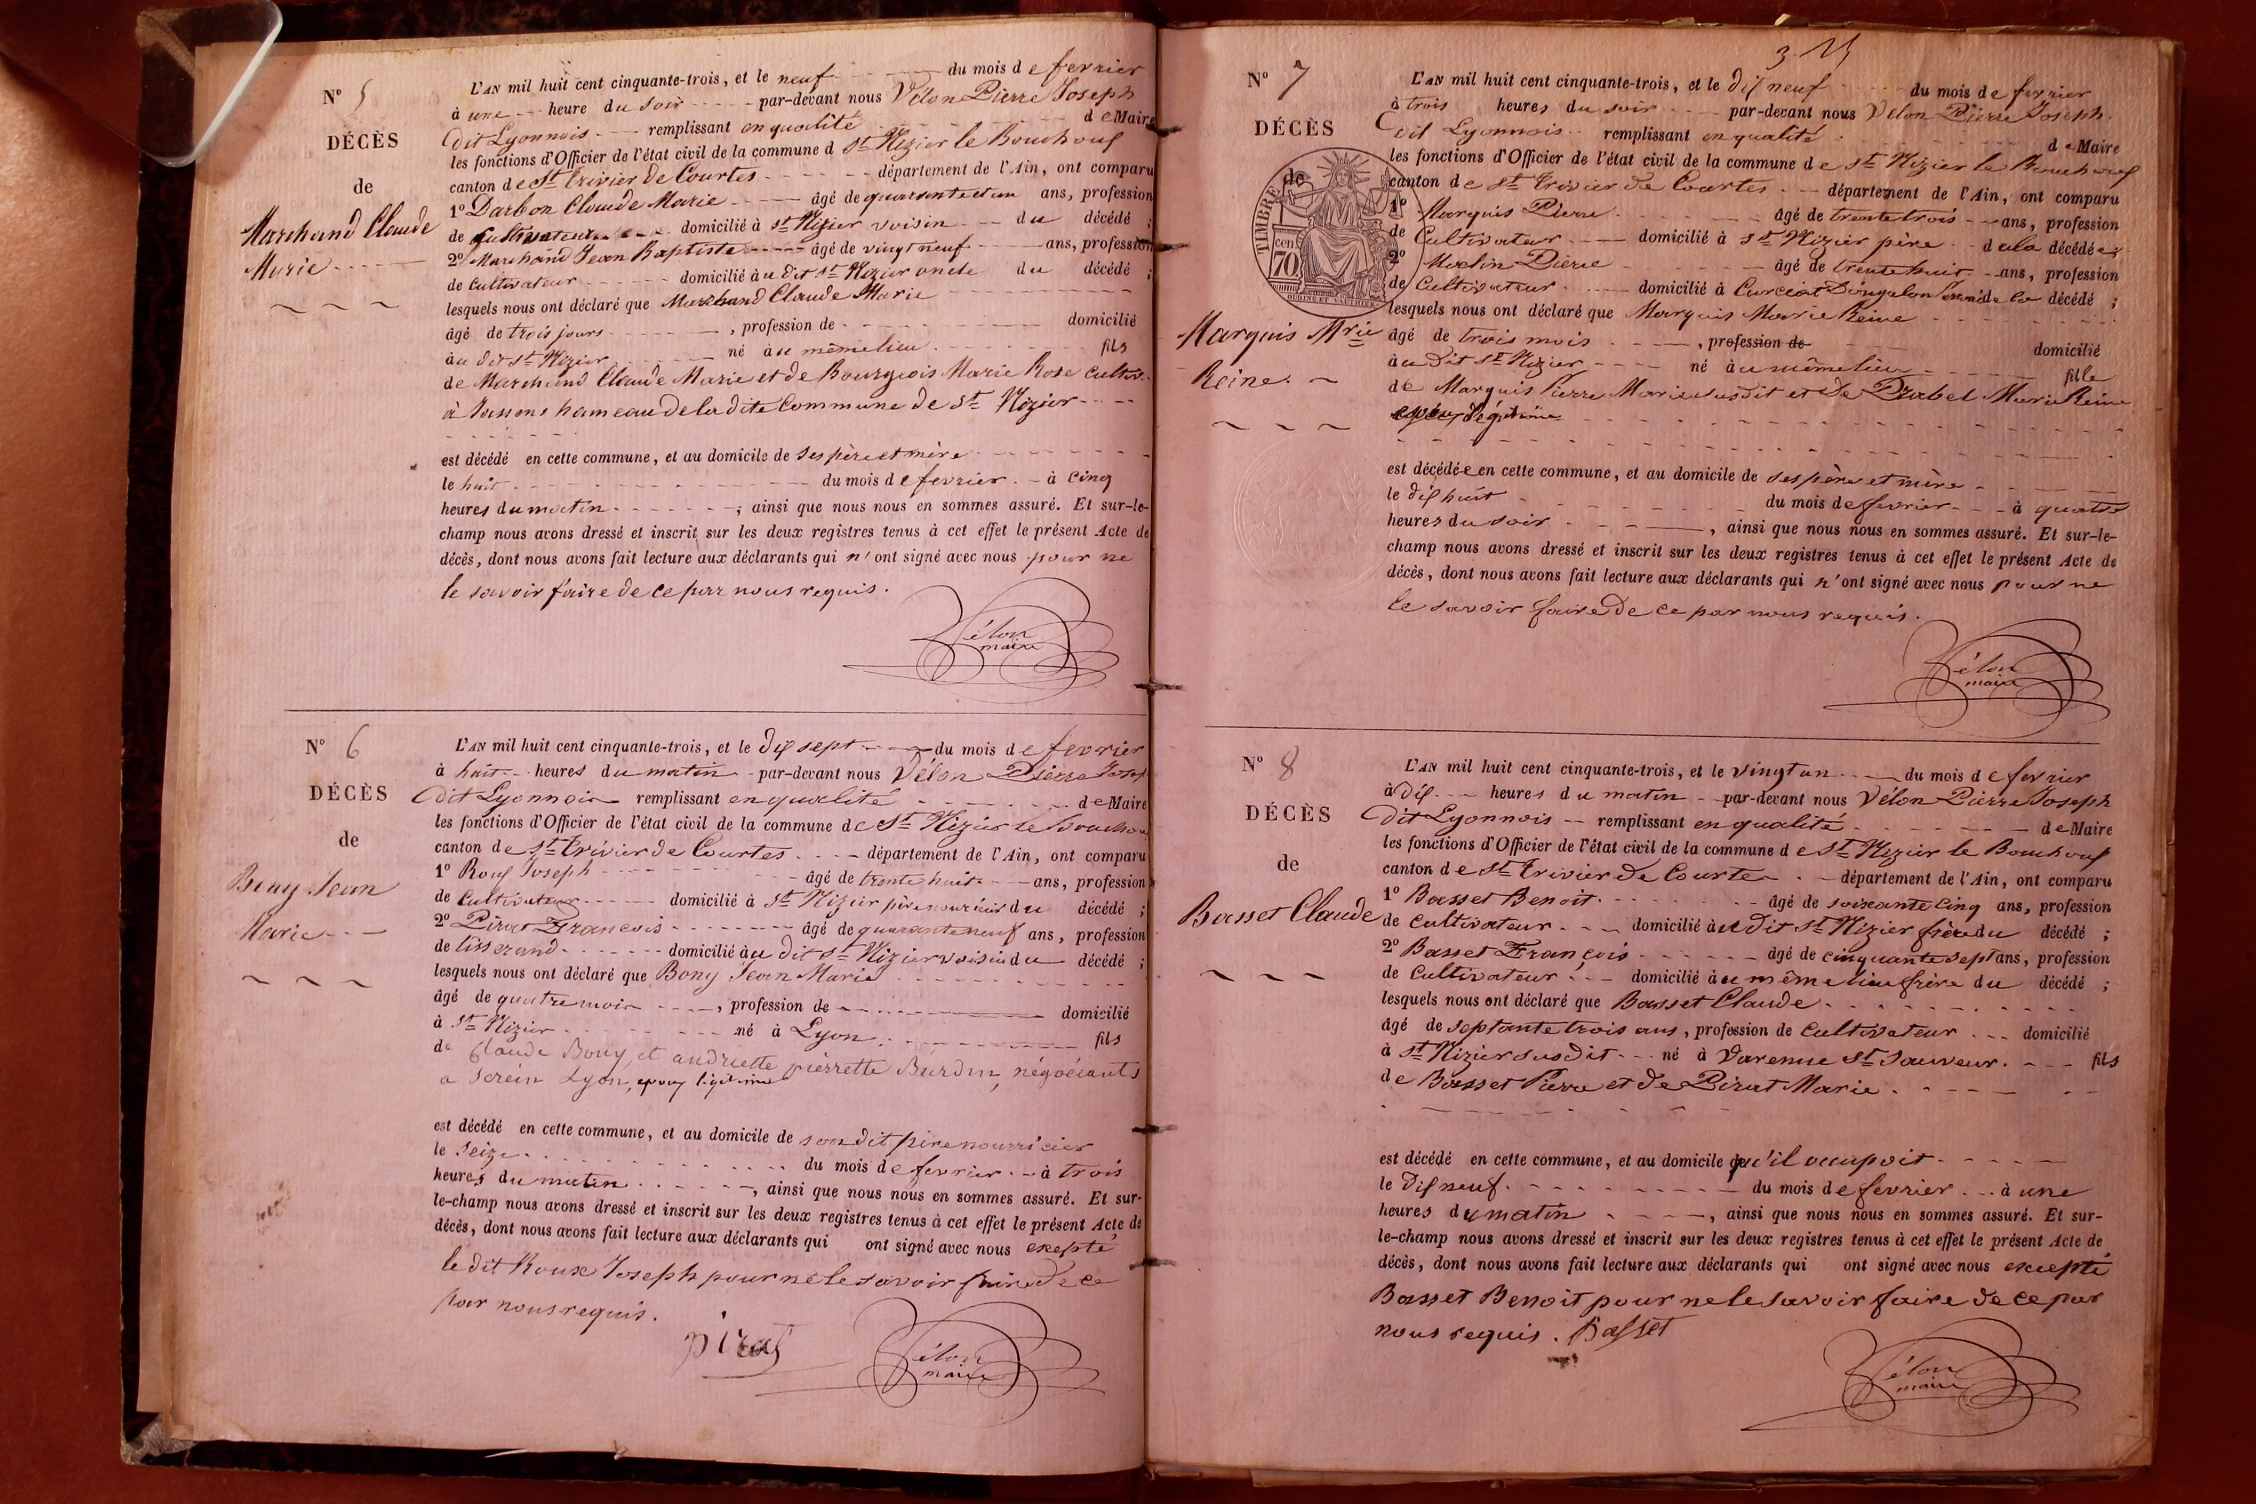 N° 5
DÉCÈS
de
Marchand Claude
Marie
L'AN mil huit cent cinquante-trois, et le neuf du mois de fevrier
à une heure du soir par-devant nous Vélon Pierre Joseph
dit Lyonnois remplissant en qualité de Maire
les fonctions d'Officier de l'état civil de la commune d St Nizier le Bouchoux
canton de St Trivier de Courtes département de l'Ain, ont comparu
1° Darbon Claude Marie âgé de quarante et un ans, profession
de Cultivateur domicilié à St Nizier voisin du décédé ;
2° Marchand Jean Baptiste âgé de vingt neuf ans, profession
de Cultivateur domicilié àu dit St Nizier oncle du décédé ;
lesquels nous ont déclaré que Marchand Claude Marie
âgé de trois jours , profession de domicilié
àu dit St Nizier né àu même lieu fils
de Marchand Claude Marie et de Bourgeois Marie Rose Cultiv.
à Jassons hameau de la dite Commune de St Nizier
est décédé en cette commune, et au domicile de ses père et mère
le huit du mois de fevrier à Cinq
heures du matin ; ainsi que nous nous en sommes assuré. Et sur-le-
champ nous avons dressé et inscrit sur les deux registres tenus à cet effet le présent Acte de
décès, dont nous avons fait lecture aux déclarants qui n'ont signé avec nous pour ne
le savoir faire de ce par nous requis.
Vélon
maire
N° 6
DÉCÈS
de
Bony Jean
Marie
L'AN mil huit cent cinquante-trois, et le dix sept du mois de fevrier
à huit heures du matin par-devant nous Vélon Pierre Josep
dit Lyonnois remplissant en qualité de Maire
les fonctions d'Officier de l'état civil de la commune de St Nizier le Bouchou
canton de St Trivier de Courtes département de l'Ain, ont comparu
1° Roux Joseph âgé de trente huit ans, profession
de Cultivateur domicilié à St Nizier père nouricier du décédé ;
2° Pirat François âgé de quarante neuf ans, profession
de tisserand domicilié àu dit St Nizier voisin du décédé ;
lesquels nous ont déclaré que Bony Jean Marie
âgé de quatre mois , profession de domicilié
à St Nizier né à Lyon fils
de Claude Bony, et andriette pierrette Burdin, négociants
a Serein Lyon, epoux légitimes
est décédé en cette commune, et au domicile de son dit père nourricier
le Seize du mois de fevrier à trois
heures du matin , ainsi que nous nous en sommes assuré. Et sur-
le-champ nous avons dressé et inscrit sur les deux registres tenus à cet effet le présent Acte de
décès, dont nous avons fait lecture aux déclarants qui ont signé avec nous excepté
le dit Roux Joseph pour ne le savoir faire de ce
par nous requis.
pirat
Vélon
maire
N° 7
DÉCÈS
de
TIMBRE
cen
70
OUDINE ET VAUTHIER
Marquis Mrie
Reine
L'AN mil huit cent cinquante-trois, et le dix neuf du mois de fevrier
à trois heures du soir par-devant nous Vélon Pierre Joseph
dit Lyonnois remplissant en qualité de Maire
les fonctions d'Officier de l'état civil de la commune de St Nizier le Bouchoux
canton de St Trivier de Courtes département de l'Ain, ont comparu
1° Marquis Pierre âgé de trente trois ans, profession
de Cultivateur domicilié à St Nizier père de la décédée ;
2° Moelin Pierre âgé de trente huit ans, profession
de Cultivateur domicilié à Curciat Dongalon de la décédé ;
lesquels nous ont déclaré que Marquis Marie Reine
âgé de trois mois , profession de domicilié
àu dit St Nizier né àu même lieu fille
de Marquis Pierre Marie susdit et de Drabet Marie Reine
époux légitimes
est décédée en cette commune, et au domicile de ses père et mère
le dix huit du mois de fevrier à quatre
heures du soir , ainsi que nous nous en sommes assuré. Et sur-le-
champ nous avons dressé et inscrit sur les deux registres tenus à cet effet le présent Acte de
décès, dont nous avons fait lecture aux déclarants qui n'ont signé avec nous pour ne
le savoir faire de ce par nous requis.
Vélon
maire
N° 8
DÉCÈS
de
Basset Claude
L'AN mil huit cent cinquante-trois, et le vingt un du mois de fevrier
à dix heures du matin par-devant nous Vélon Pierre Joseph
dit Lyonnois remplissant en qualité de Maire
les fonctions d'Officier de l'état civil de la commune de St Nizier le Bouchoux
canton de St Trivier de Courtes département de l'Ain, ont comparu
1° Basset Benoit âgé de soixante Cinq ans, profession
de Cultivateur domicilié àu dit St Nizier frère du décédé ;
2° Basset François âgé de cinquante sept ans, profession
de Cultivateur domicilié àu même lieu frère du décédé ;
lesquels nous ont déclaré que Basset Claude
âgé de septante trois ans, profession de Cultivateur domicilié
à St Nizier susdit né à Varenne St Sauveur fils
de Basset Pierre et de Pirat Marie
est décédé en cette commune, et au domicile qu'il occupoit
le dix neuf du mois de fevrier à une
heures du matin , ainsi que nous nous en sommes assuré. Et sur-
le-champ nous avons dressé et inscrit sur les deux registres tenus à cet effet le présent Acte de
décès, dont nous avons fait lecture aux déclarants qui ont signé avec nous excepté
Basset Benoit pour ne le savoir faire de ce par
nous requis. Basset
Vélon
maire